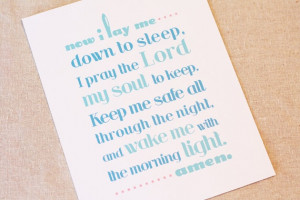 now i lay me
down to sleep,
I pray the Lord
my soul to keep.
Keep me safe all
through the night,
and wake me with
the morning light.
amen.